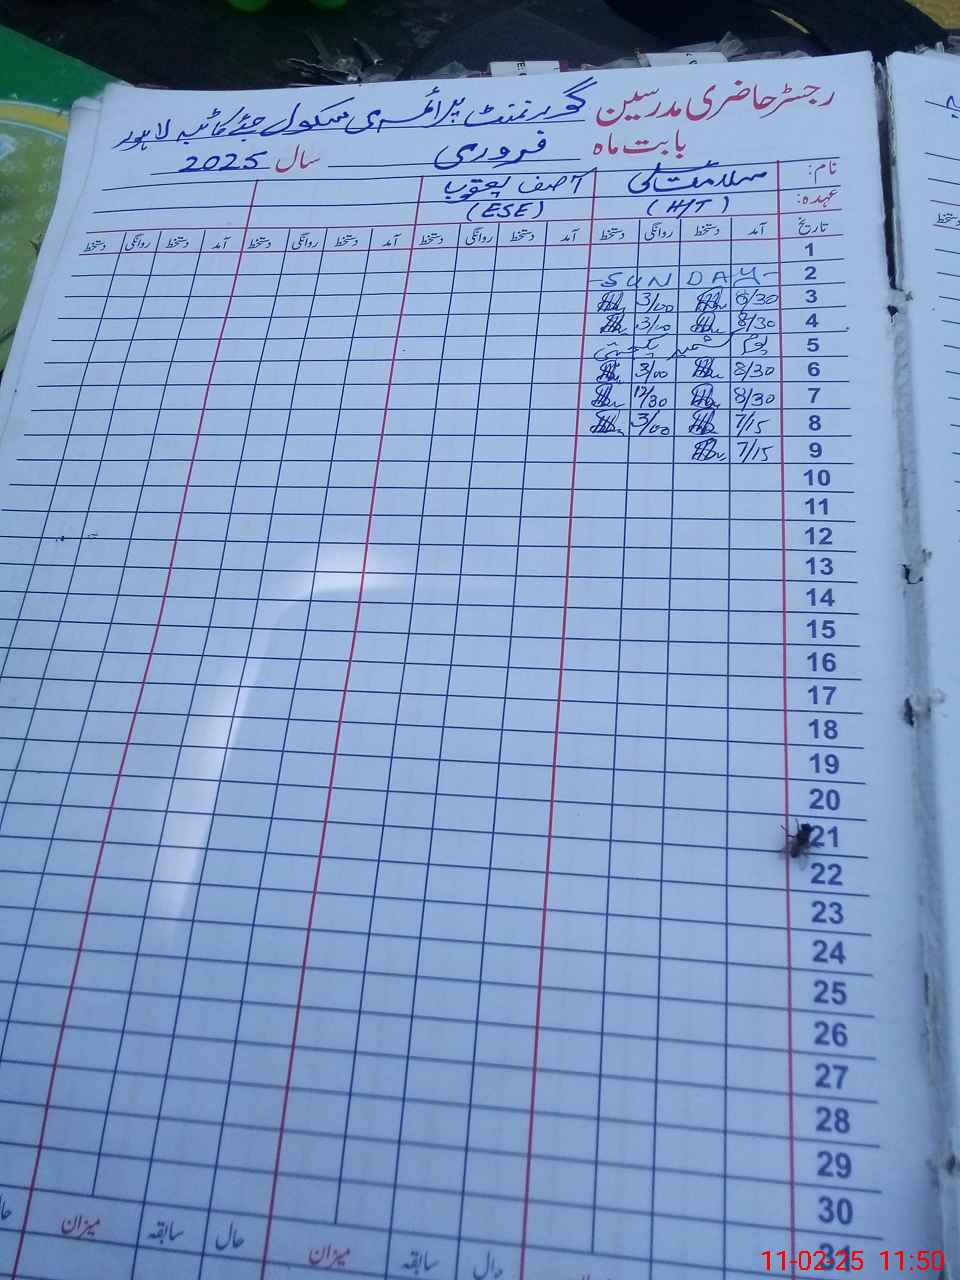 رجسٹر حاضری مدرسین گورنمنٹ پرائمری سکول لاہور
بابت ماہ فروری سال 2025
نام: سلامت علی آصف یعقوب
عہدہ: (H/T) (ESE)
تاریخ آمد دستخط روانگی دستخط آمد دستخط روانگی دستخط آمد دستخط روانگی دستخط آمد دستخط روانگی دستخط
1
2 -SUNDAY-
3 8/30 3/00
4 8/30 3/00
5 یوم کشمیر یکجہتی
6 8/30 3/00
7 8/30 12/30
8 7/15 3/00
9 7/15
10
11
12
13
14
15
16
17
18
19
20
21
22
23
24
25
26
27
28
29
30
31
حال سابقہ میزان حال سابقہ میزان
11-02-25 11:50